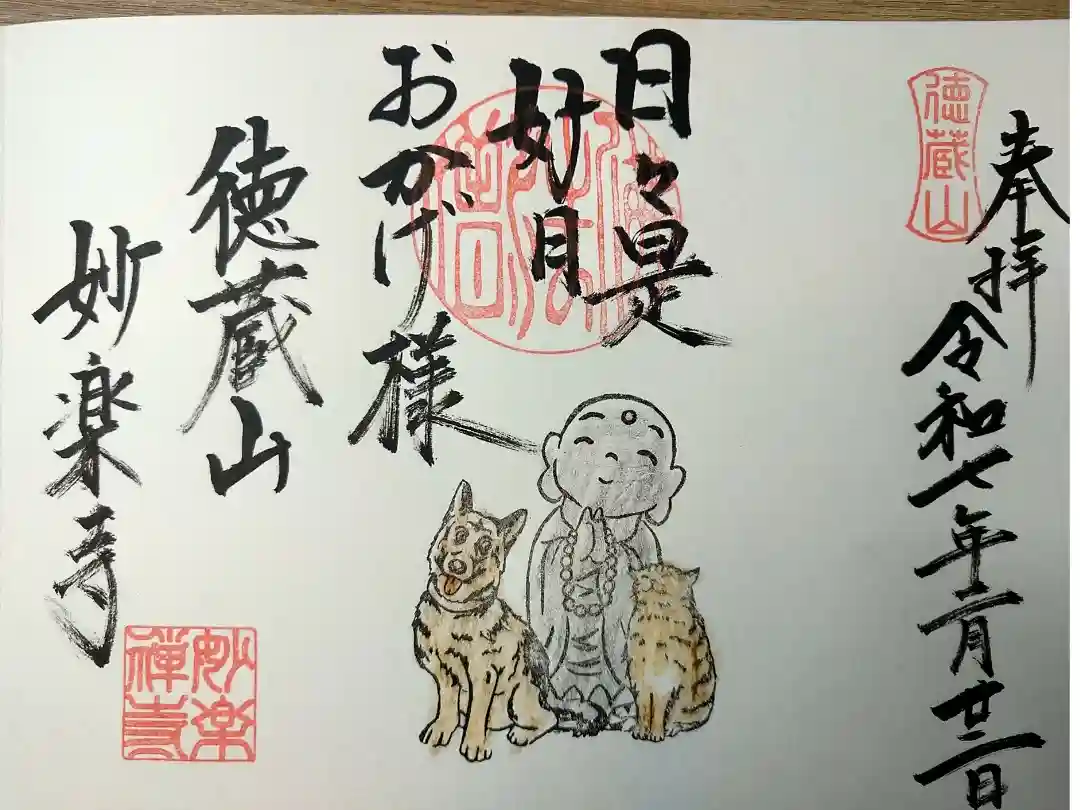 奉拝
令和七年二月廿二日
徳蔵山
日々是
好日
おかげ様
徳蔵山
妙楽寺
妙楽
禅寺